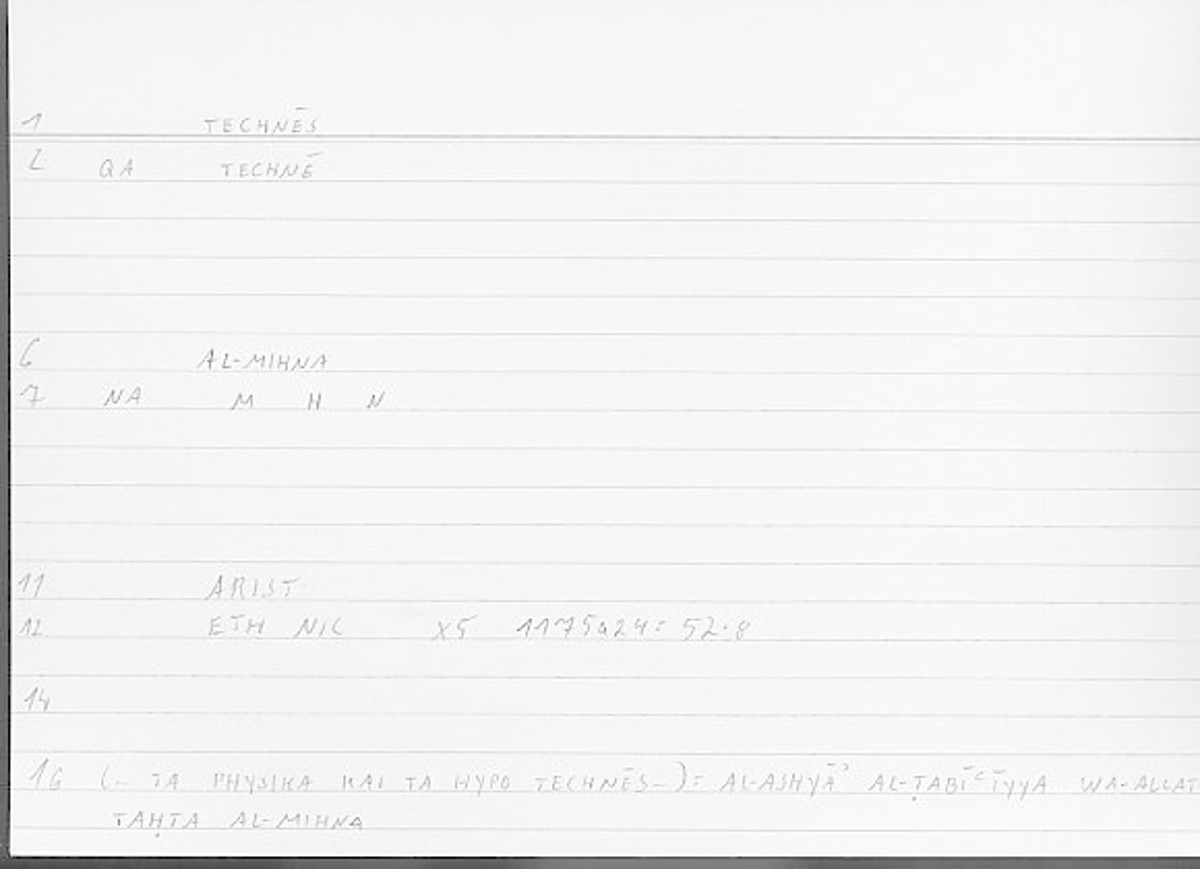 1 TECHNĒS
2 QA TECHNĒ
6 AL-MIHNA
7 NA M H N
11 ARIST
12 ETH NIC X5 1175a24: 52.8
14
16 (– TA PHYSIKA KAI TA HYPO TECHNĒS –): AL-ASHYĀʾ AL-ṬABĪʿĪYYA WA-ALLAT
TAḤTA AL-MIHNA